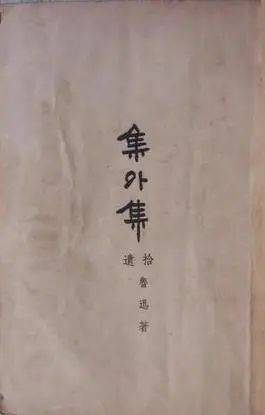 集外集
拾遺
魯迅著